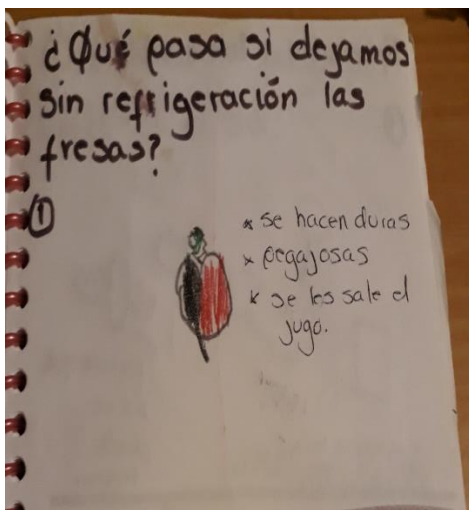 ¿Qué pasa si dejamos
sin refrigeración las
fresas?
①
* se hacen duras
* pegajosas
* se les sale el
jugo.